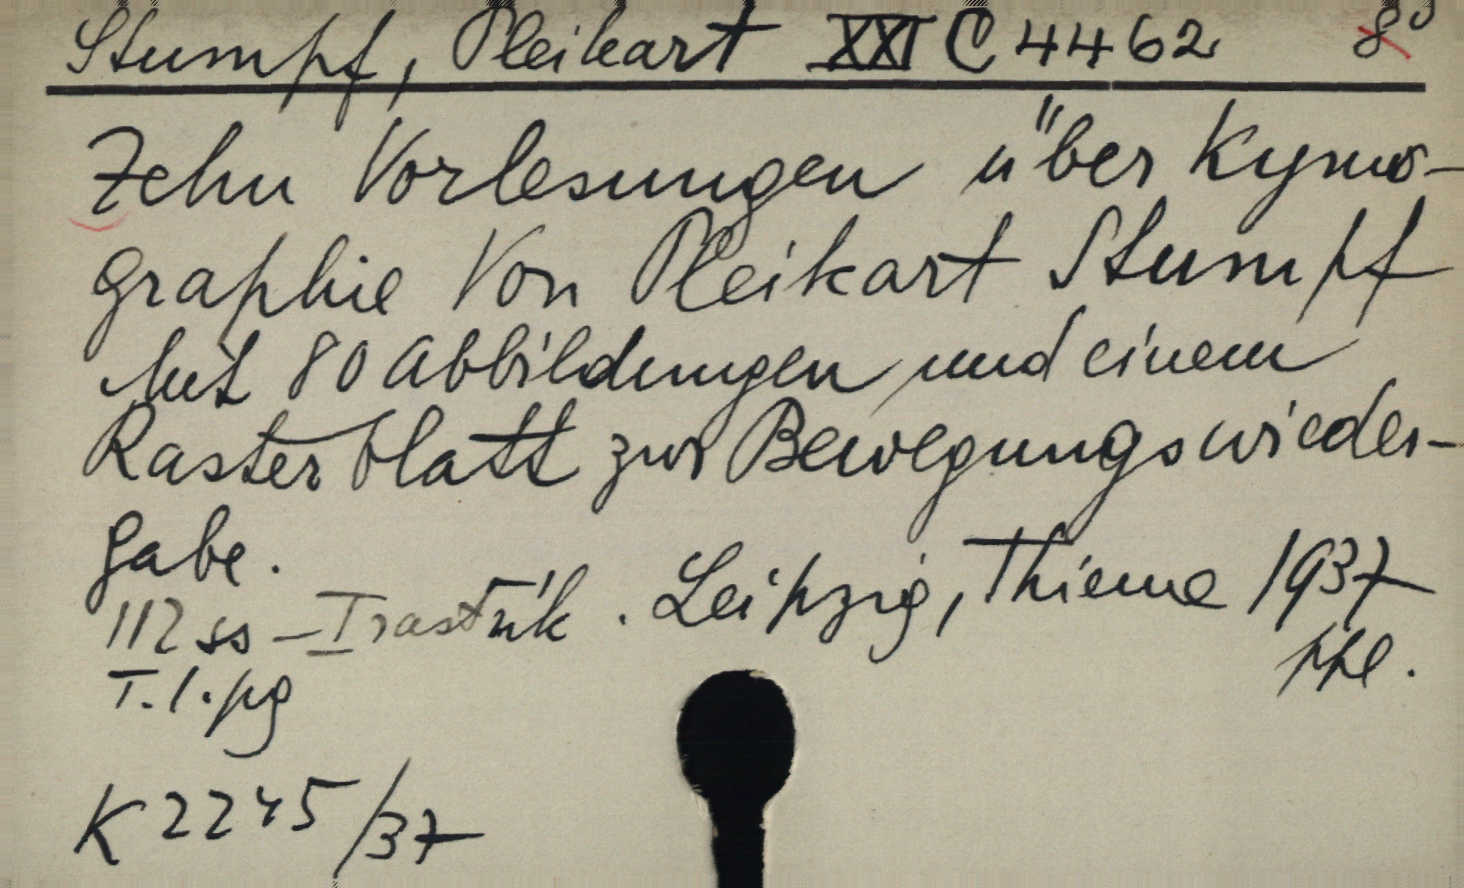 Stumpf, Pleikart XXI C 4462 8°
Zehn Vorlesungen über Kymo-
graphie Von Pleikart Stumpf
Mit 80 Abbildungen und einem
Rasterblatt zur Bewegungswieder-
gabe.
112 ss – I rastrik. Leipzig, Thieme 1937
T.l.pg ppl.
K 2245/37